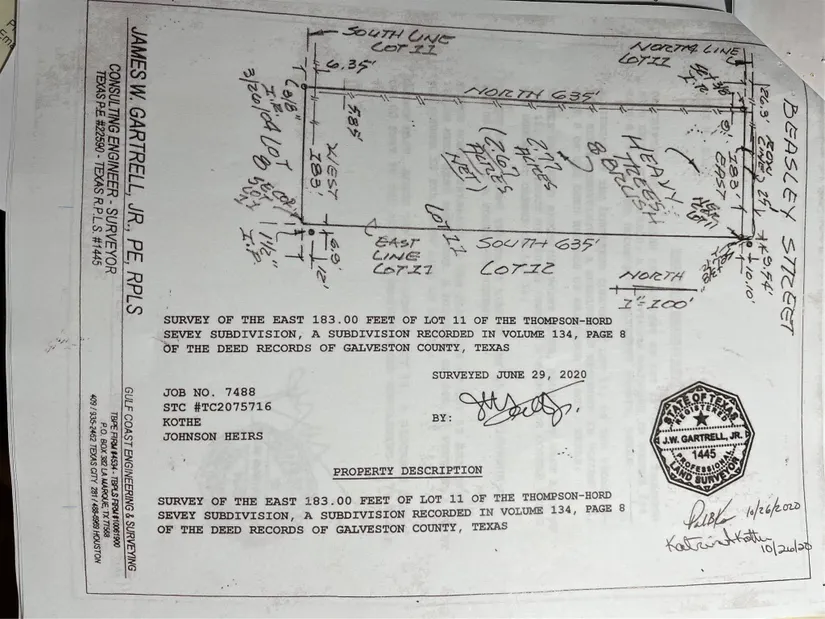 SOUTH LINE
LOT 11
NORTH LINE
LOT 11
6.35'
NORTH 635'
26.3'
ROW
LINE
25'
BEASLEY STREET
585'
WEST
183'
2.77
ACRES
(2.67
ACRES
NET)
HEAVY
TREES
& BRUSH
183'
EAST
LOT 11
EAST
LINE
LOT 11
SOUTH 635'
LOT 12
6.9'
12'
1 1/2"
I.P.
10.10'
NORTH
1"=100'
SURVEY OF THE EAST 183.00 FEET OF LOT 11 OF THE THOMPSON-HORD
SEVEY SUBDIVISION, A SUBDIVISION RECORDED IN VOLUME 134, PAGE 8
OF THE DEED RECORDS OF GALVESTON COUNTY, TEXAS
SURVEYED JUNE 29, 2020
JOB NO. 7488
STC #TC2075716
KOTHE
JOHNSON HEIRS
BY:
STATE OF TEXAS
REGISTERED
J.W. GARTRELL, JR.
1445
PROFESSIONAL
LAND SURVEYOR
PROPERTY DESCRIPTION
SURVEY OF THE EAST 183.00 FEET OF LOT 11 OF THE THOMPSON-HORD
SEVEY SUBDIVISION, A SUBDIVISION RECORDED IN VOLUME 134, PAGE 8
OF THE DEED RECORDS OF GALVESTON COUNTY, TEXAS
10/26/2020
10/26/20
JAMES W. GARTRELL, JR., PE, RPLS
CONSULTING ENGINEER - SURVEYOR
TEXAS P.E. #22590 - TEXAS R.P.L.S. #1445
GULF COAST ENGINEERING & SURVEYING
TBPE FIRM #4534 - TBPLS FIRM #10081900
P.O. BOX 382 LA MARQUE, TX 77568
409 / 935-2462 TEXAS CITY 281 / 486-6969 HOUSTON